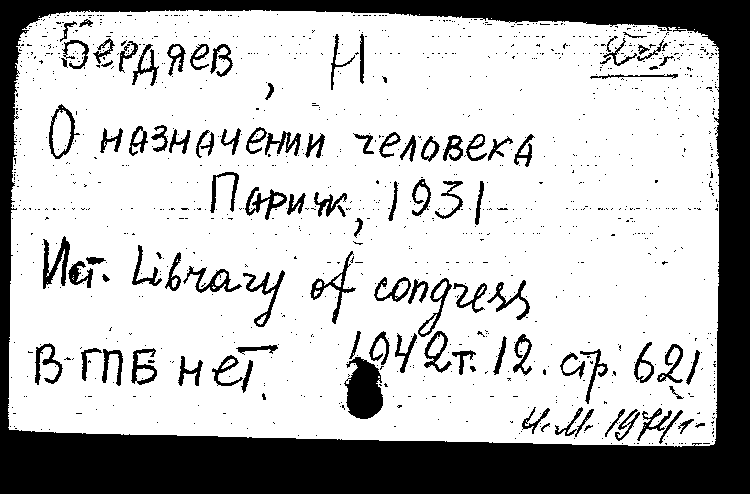 Бердяев, Н.
О назначении человека
Париж, 1931
Ист. Library of congress
1942 т. 12. стр. 621
в ГПБ нет.
Н.М. 1974 г.